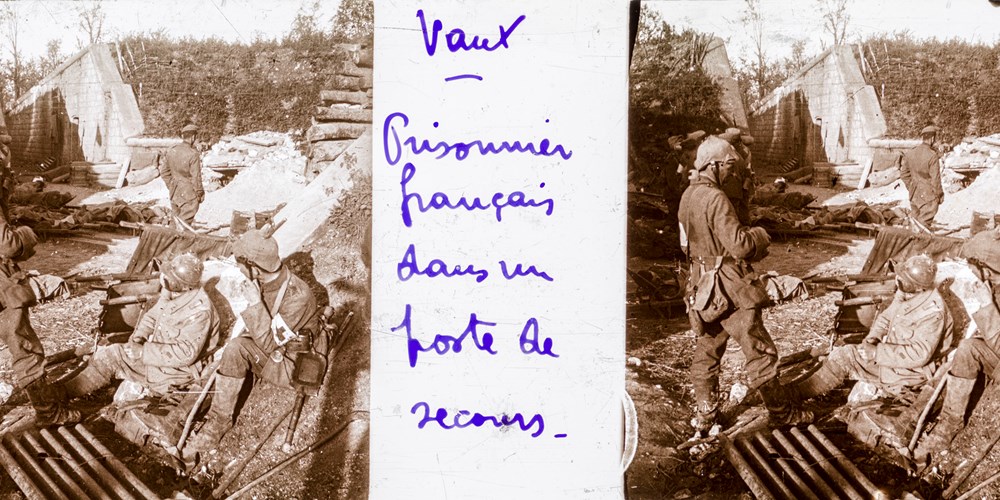 Vaux
Prisonnier
français
dans un
poste de
secours_